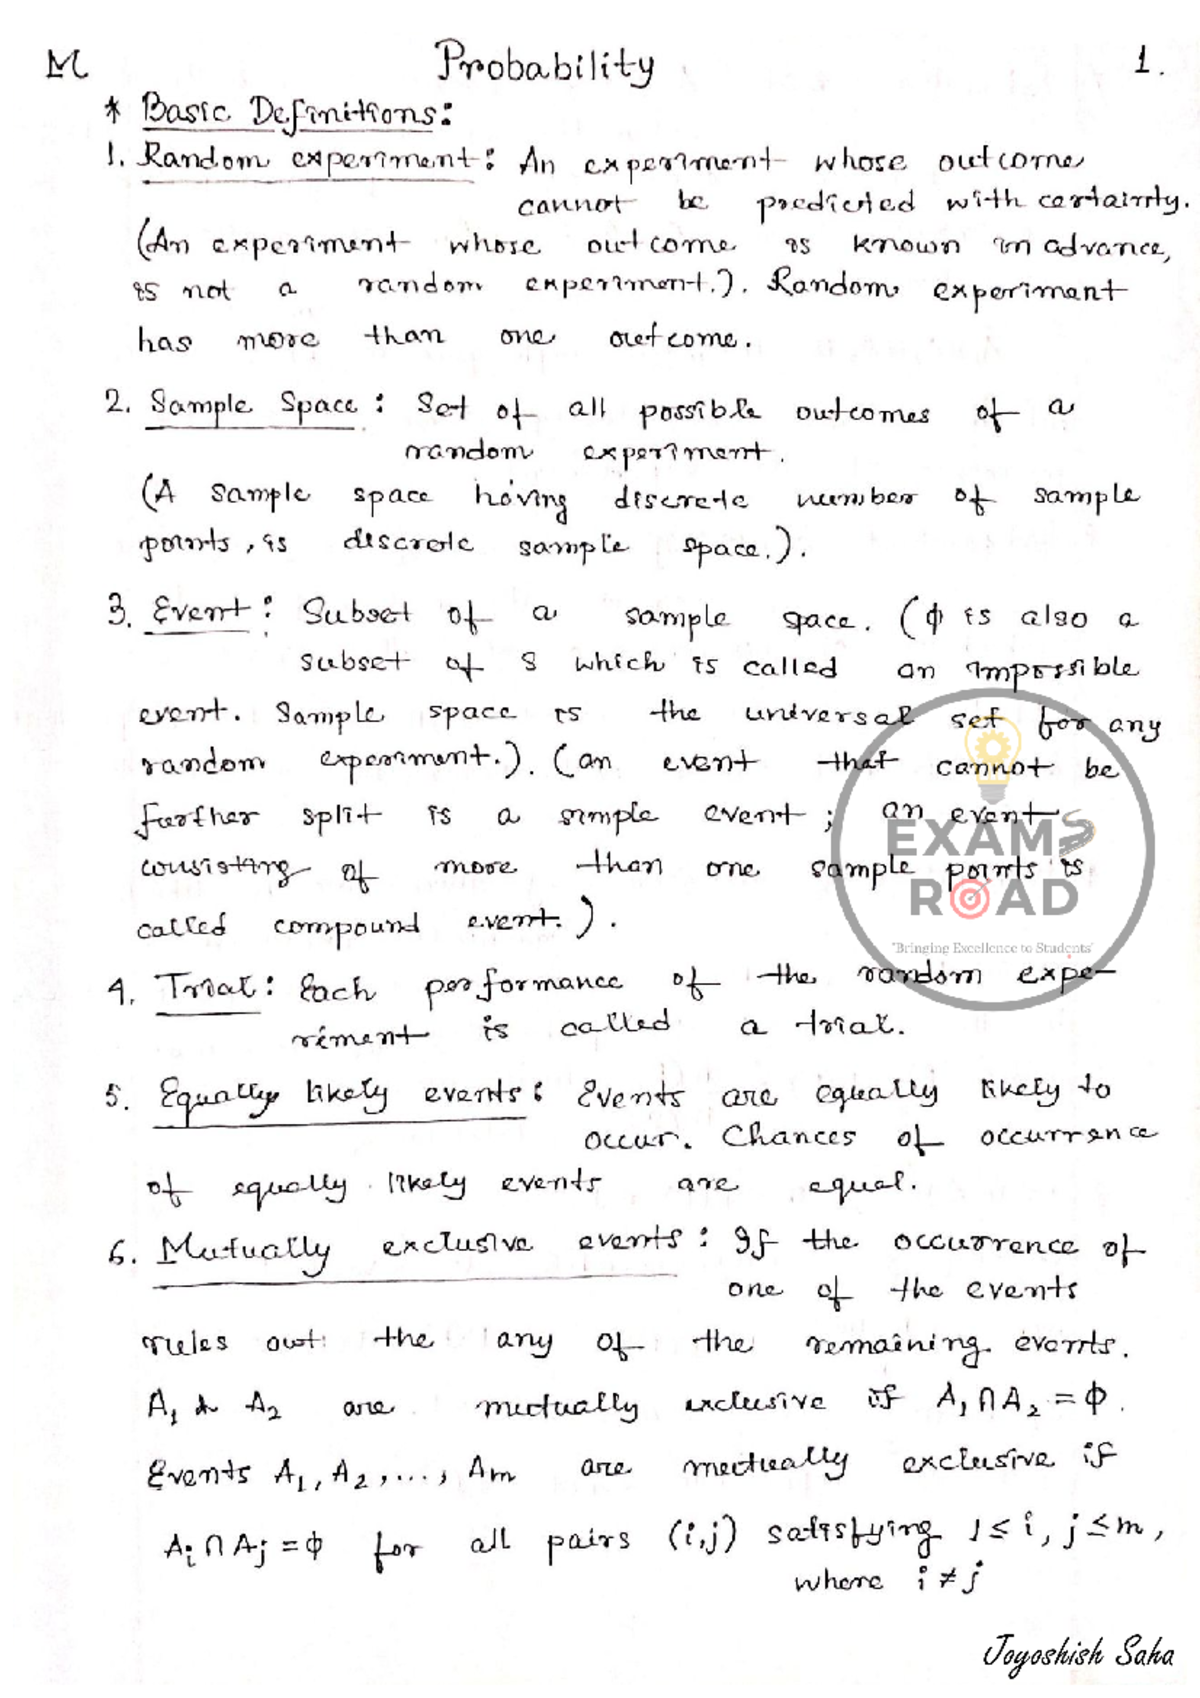 M Probability 1.
* Basic Definitions:
1. Random experiment: An experiment whose outcome
cannot be predicted with certainty.
(An experiment whose outcome is known in advance,
is not a random experiment.). Random experiment
has more than one outcome.
2. Sample Space: Set of all possible outcomes of a
random experiment.
(A sample space having discrete number of sample
points, is discrete sample space.).
3. Event: Subset of a sample space. (ϕ is also a
subset of S which is called an impossible
event. Sample space is the universal set for any
random experiment.). (an event that cannot be
further split is a simple event; an event
consisting of more than one sample points is
called compound event.).
EXAMS
ROAD
"Bringing Excellence to Students"
4. Trial: Each performance of the random expe-
riment is called a trial.
5. Equally likely events: Events are equally likely to
occur. Chances of occurrence
of equally likely events are equal.
6. Mutually exclusive events: If the occurrence of
one of the events
rules out the any of the remaining events.
A₁ & A₂ are mutually exclusive if A₁ ∩ A₂ = ϕ.
Events A₁, A₂, ..., Am are mutually exclusive if
Ai ∩ Aj = ϕ for all pairs (i,j) satisfying 1 ≤ i, j ≤ m,
where i ≠ j
Joyoshish Saha